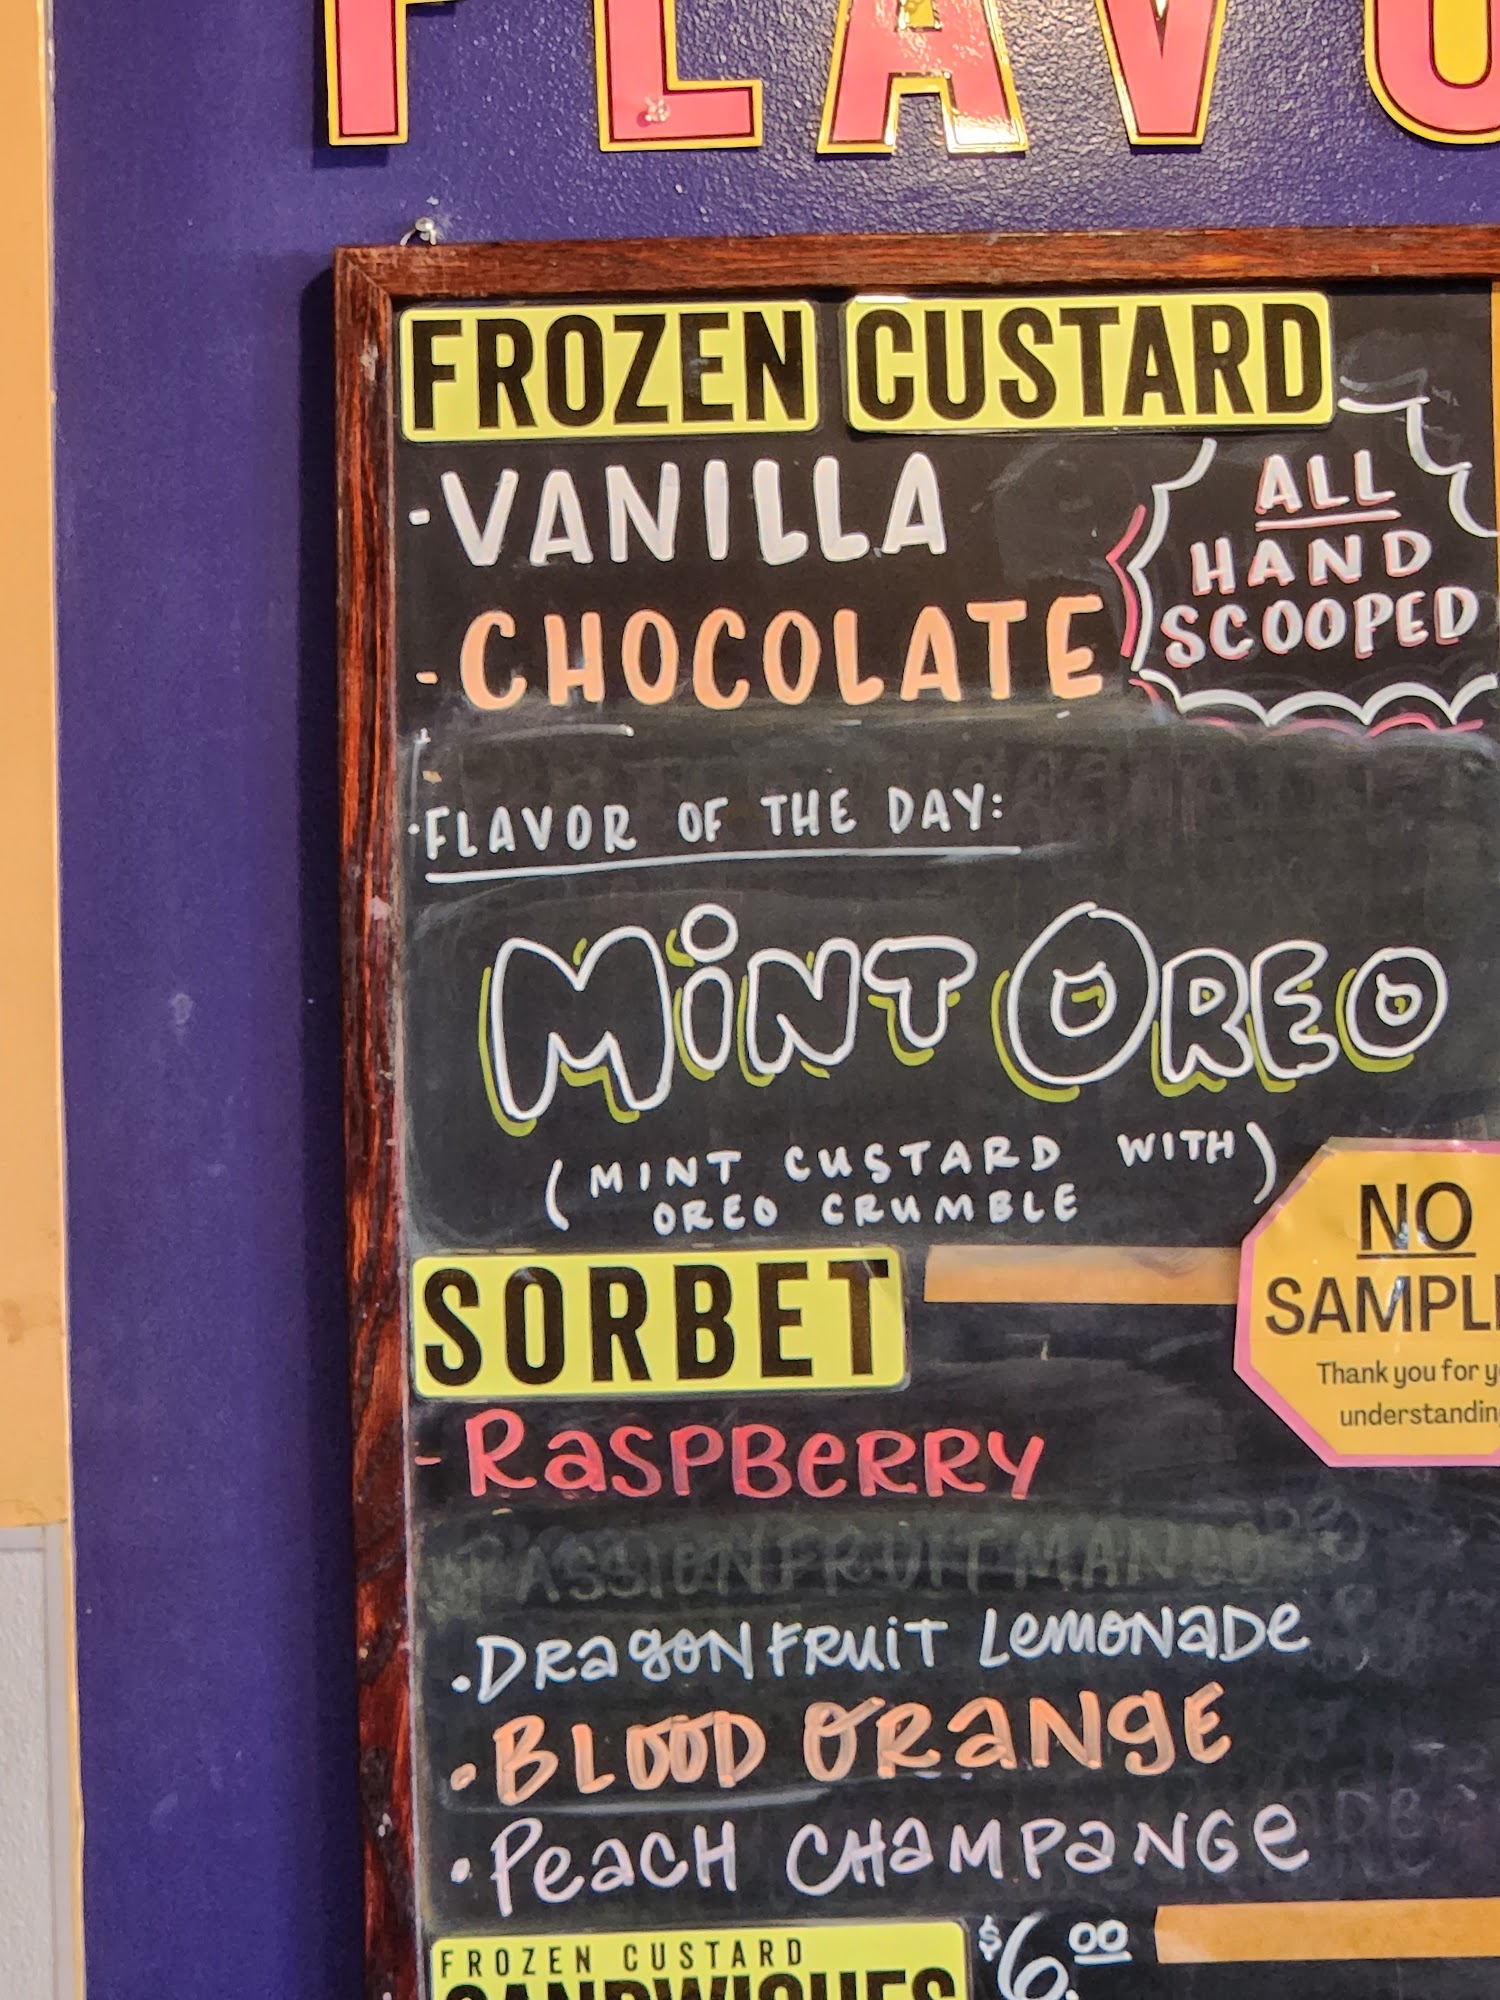 FLAVO
FROZEN CUSTARD
- VANILLA
- CHOCOLATE
ALL
HAND
SCOOPED
FLAVOR OF THE DAY:
MiNT OREO
(MINT CUSTARD WITH)
OREO CRUMBLE
SORBET
NO
SAMPL
Thank you for y
understandin
- RaSPBeRRY
PASSIONFRUIT MANGO
· DRagON FRUiT LeMONaDe
· BLOOD ORaNgE
· PeacH CHaMPaNGe
FROZEN CUSTARD
SANDWICHES
$6.00